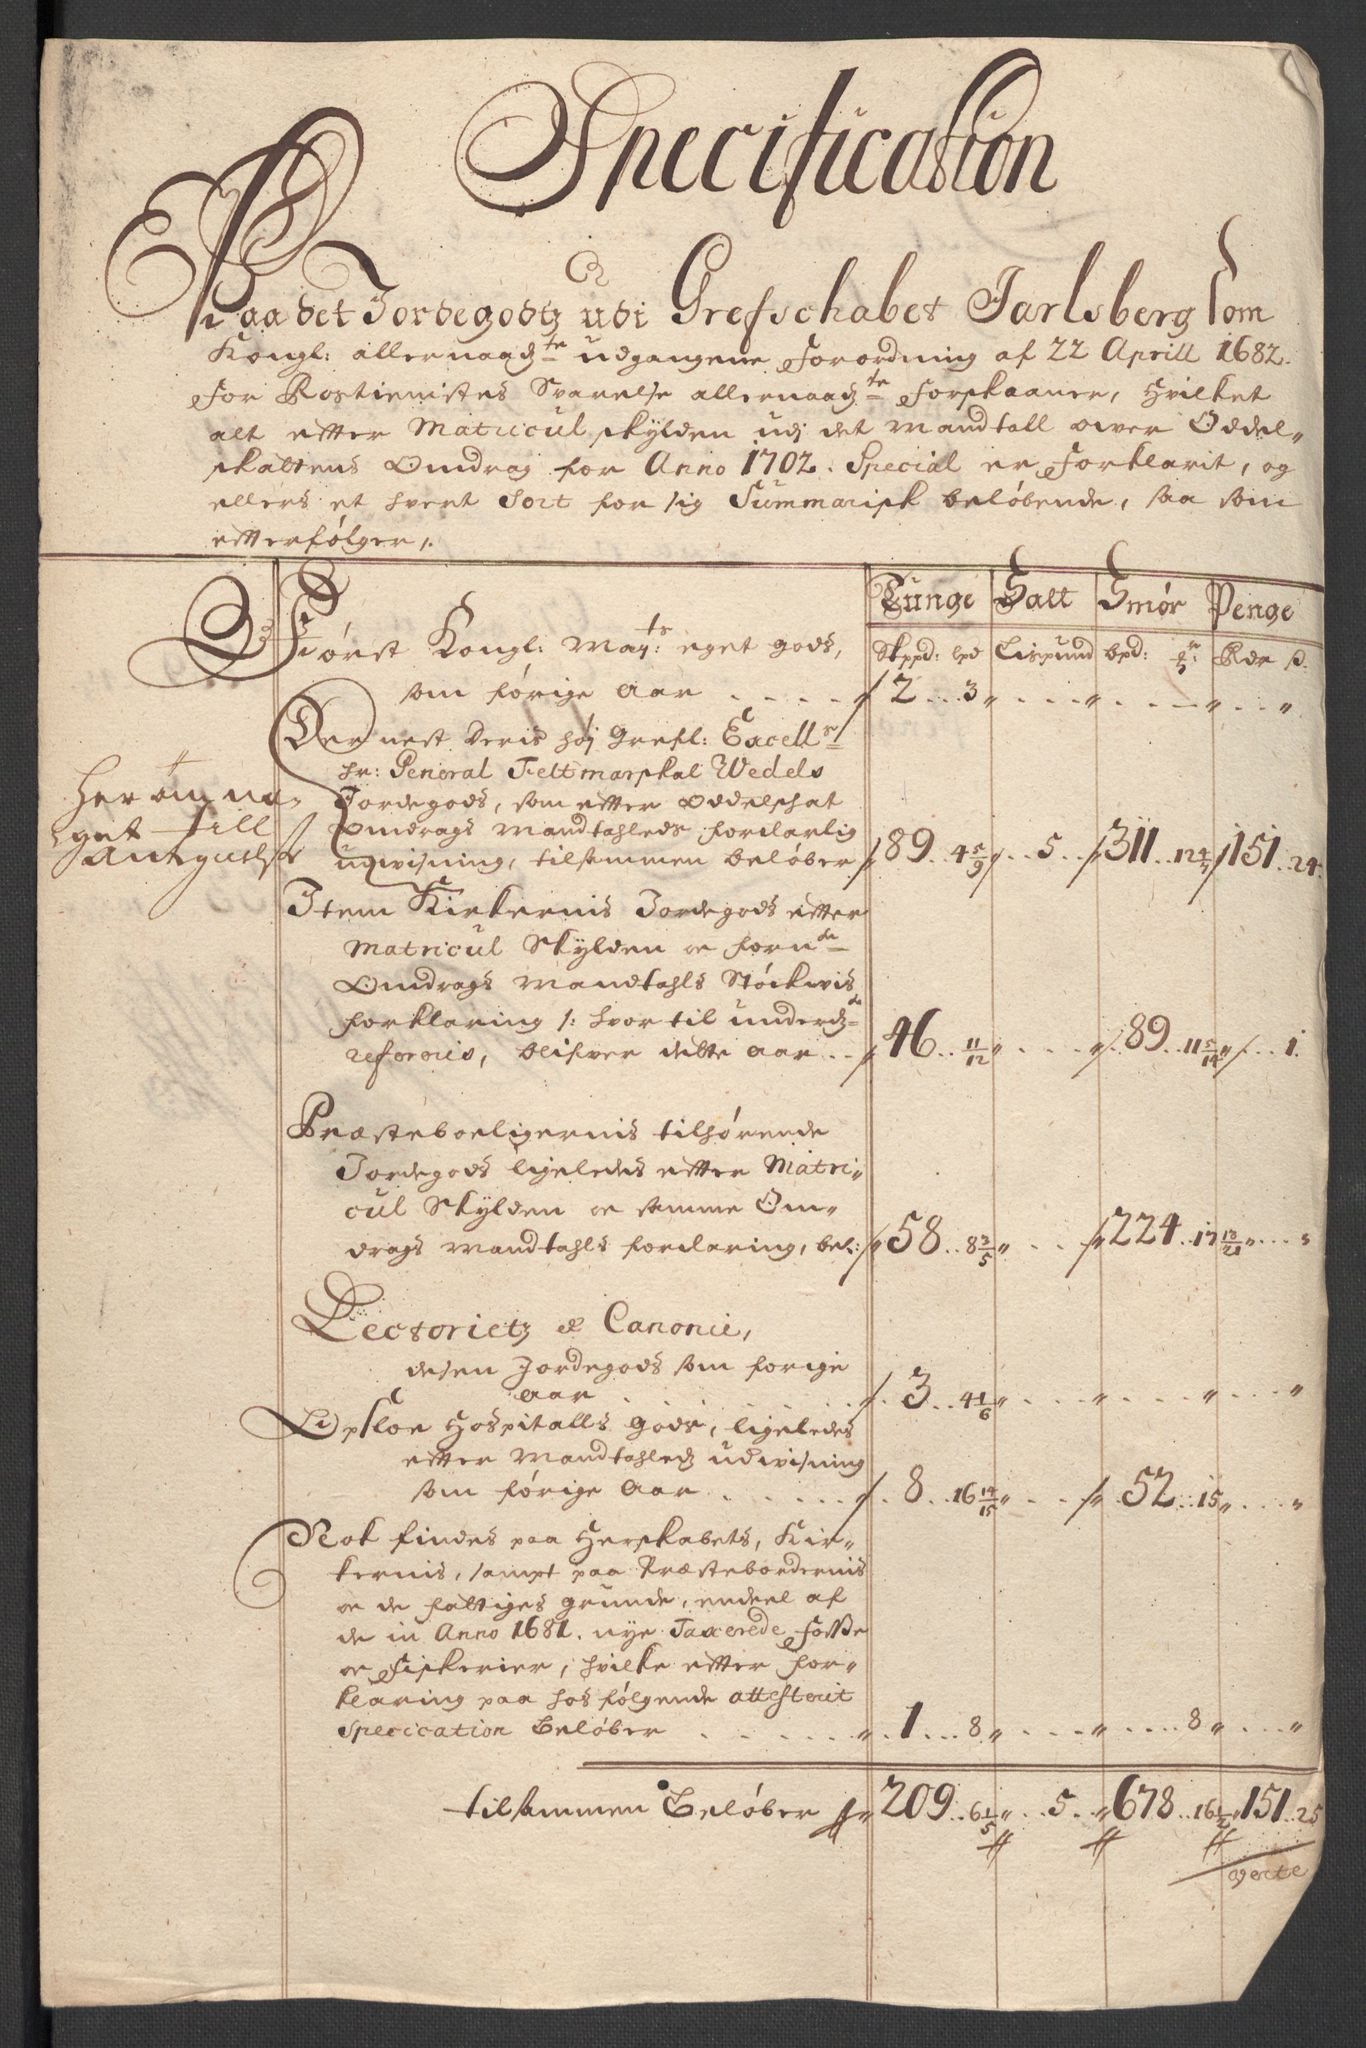 Specification
Paa det Jordegodtz udi Grefschabet Jarlsberg som
Kongl: allernaadte udgangene Forordning af 22 Aprill 1682.
for Rostienistes Svarelse allernaadte Forskaaner, Hvilket
alt efter Matricul skylden udj det Mandtall over Oddel„
skattens Omdrag for Anno 1702. Special er Forklarit, og
ellers et hvert Sort for sig Summarisk beløbende, saa som
efterfølger,.
Tunge Salt Smør Penge
Først Kongl: Mayts: eget gods,
Skppd: lpd Lispund bpd: Rdr s.
som førige Aar . . . . 2 . . 3 „ . . . „ . . . „ . . „
Der nest Deris høj Grefl: Excell
Hr: General Feltmarskal Wedels
Jordegods, som efter Oddelschat
Omdrags Mandtahleds forclarlig
udvisning, tilsammen beløber 89 . . 4 5/9 . . 5 . . 311 . . 12 4/7 151 . . 24.
Her om na„
get till
Antegnelse
Item Kirkernis Jordegods efter
Matricul Skylden oc forn
Omdrags Mandtahls Støckvis
forklaring /: hvor til underd
refereris, blifver dette aar . . 46 . . 11/12 „ . . . . „ 89 . . 11 5/14 „ . . 1.
Præsteboeligernis tilhørende
Jordegods ligeledes efter Matri„
cul Skylden oc samme Om„
drags Mandtahls forclaring, bel: 58 . . 8 3/5 „ . . . 224 . . 17 13/21 „ . . . „
Lectorietz & Canonie,
desen Jordegods som forige
aar . . . . . . 3 . . 4 1/6 „ . . . . „ . . . . „ . . . „
Opsloe Hospitalls gods, ligeledes
efter Mandtahleds udvisning
som førige Aar . . . . . 8 . . 16 14/15 „ . . . 52 . . 15 „ . . . „
Nok findes paa Herskabets, Kir„
kernis, sampt paa Præstebordernis
oc de fattiges grunde, endeel af
de in Anno 1681. nye Taxerede Fosse
oc Fiskerier, hvilke efter for„
klaring paa hos følgende attesterit
Specication Beløber . . . . . „ . 1 . . 8 „ . . . . „ . . . . 8 „ . . . „
tilsammen Beløber 209 . . 6 1/5 „ . . 5 . . „ 678 . . 16 1/2 „ 151 . . 25
verte